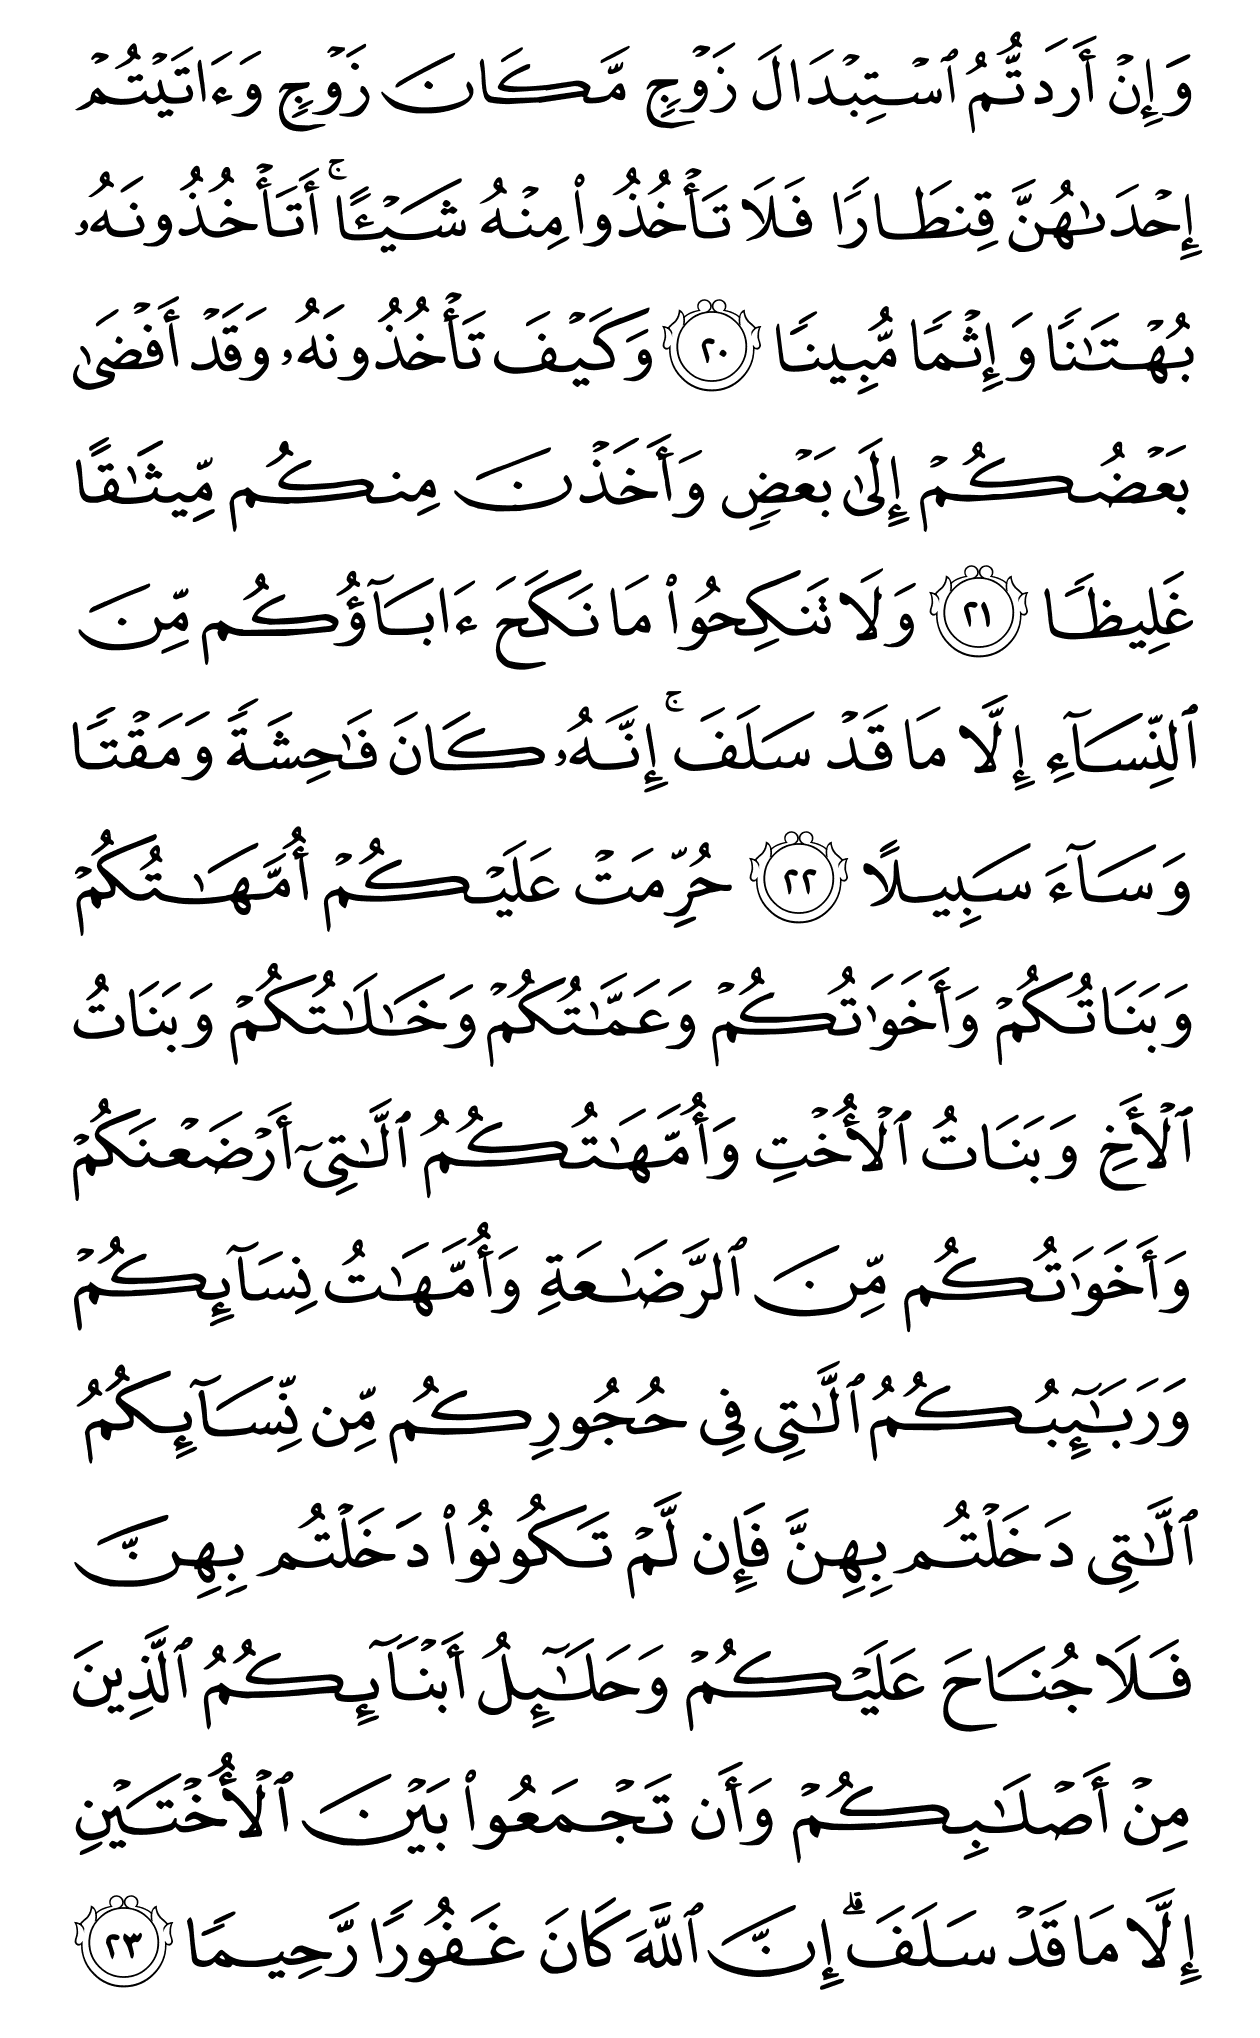 وَإِنْ أَرَدتُّمُ ٱسْتِبْدَالَ زَوْجٍ مَّكَانَ زَوْجٍ وَءَاتَيْتُمْ
إِحْدَىٰهُنَّ قِنطَارًا فَلَا تَأْخُذُوا۟ مِنْهُ شَيْـًٔا ۚ أَتَأْخُذُونَهُۥ
بُهْتَـٰنًا وَإِثْمًا مُّبِينًا ٢٠ وَكَيْفَ تَأْخُذُونَهُۥ وَقَدْ أَفْضَىٰ
بَعْضُكُمْ إِلَىٰ بَعْضٍ وَأَخَذْنَ مِنكُم مِّيثَـٰقًا
غَلِيظًا ٢١ وَلَا تَنكِحُوا۟ مَا نَكَحَ ءَابَآؤُكُم مِّنَ
ٱلنِّسَآءِ إِلَّا مَا قَدْ سَلَفَ ۚ إِنَّهُۥ كَانَ فَـٰحِشَةً وَمَقْتًا
وَسَآءَ سَبِيلًا ٢٢ حُرِّمَتْ عَلَيْكُمْ أُمَّهَـٰتُكُمْ
وَبَنَاتُكُمْ وَأَخَوَٰتُكُمْ وَعَمَّـٰتُكُمْ وَخَـٰلَـٰتُكُمْ وَبَنَاتُ
ٱلْأَخِ وَبَنَاتُ ٱلْأُخْتِ وَأُمَّهَـٰتُكُمُ ٱلَّـٰتِىٓ أَرْضَعْنَكُمْ
وَأَخَوَٰتُكُم مِّنَ ٱلرَّضَـٰعَةِ وَأُمَّهَـٰتُ نِسَآئِكُمْ
وَرَبَـٰٓئِبُكُمُ ٱلَّـٰتِى فِى حُجُورِكُم مِّن نِّسَآئِكُمُ
ٱلَّـٰتِى دَخَلْتُم بِهِنَّ فَإِن لَّمْ تَكُونُوا۟ دَخَلْتُم بِهِنَّ
فَلَا جُنَاحَ عَلَيْكُمْ وَحَلَـٰٓئِلُ أَبْنَآئِكُمُ ٱلَّذِينَ
مِنْ أَصْلَـٰبِكُمْ وَأَن تَجْمَعُوا۟ بَيْنَ ٱلْأُخْتَيْنِ
إِلَّا مَا قَدْ سَلَفَ ۗ إِنَّ ٱللَّهَ كَانَ غَفُورًا رَّحِيمًا ٢٣